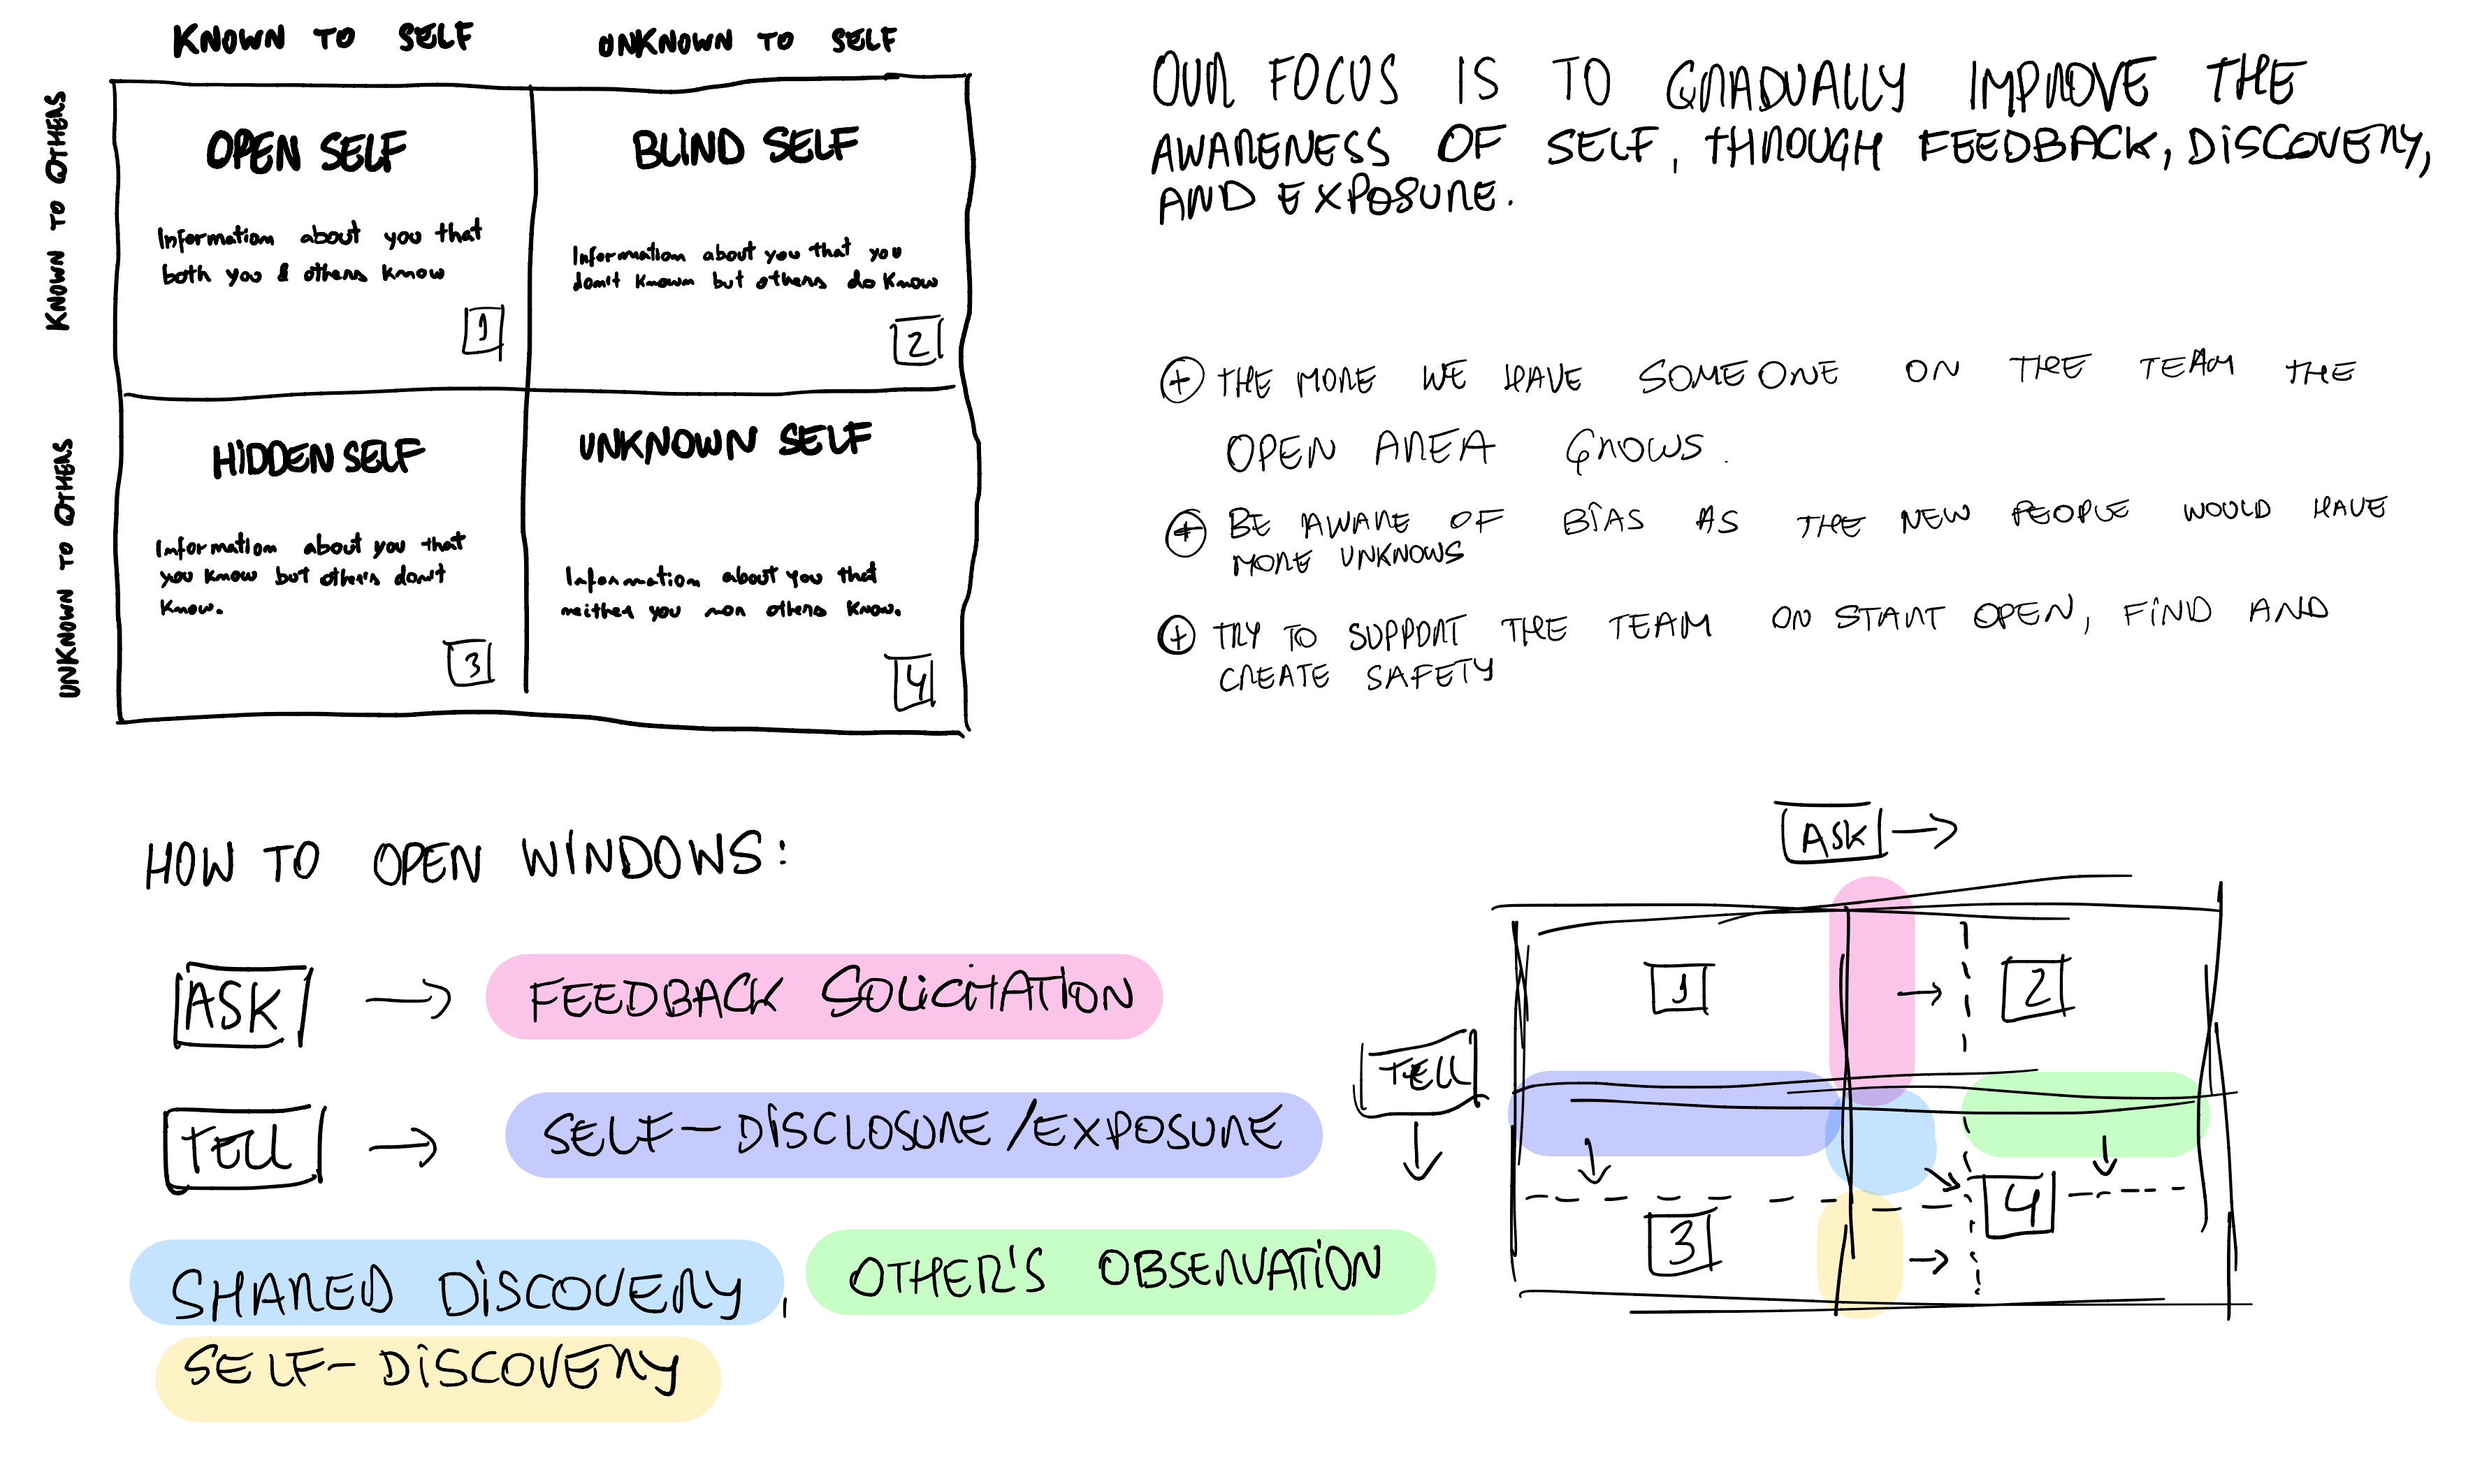 KNOWN TO SELF
UNKNOWN TO SELF
KNOWN TO OTHERS
OPEN SELF
Information about you that
both you & others know
1
BLIND SELF
Information about you that you
don't known but others do know
2
UNKNOWN TO OTHERS
HIDDEN SELF
Information about you that
you know but other's don't
know.
3
UNKNOWN SELF
Information about you that
neither you nor others know.
4
OUR FOCUS IS TO GRADUALLY IMPROVE THE
AWARENESS OF SELF, THROUGH FEEDBACK, DISCOVERY,
AND EXPOSURE.
+ THE MORE WE HAVE SOMEONE ON THE TEAM THE
OPEN AREA GROWS.
+ BE AWARE OF BIAS AS THE NEW PEOPLE WOULD HAVE
MORE UNKNOWS
+ TRY TO SUPPORT THE TEAM ON START OPEN, FIND AND
CREATE SAFETY
HOW TO OPEN WINDOWS:
ASK → FEEDBACK SOLICITATION
TELL → SELF-DISCLOSURE/EXPOSURE
SHARED DISCOVERY, OTHER'S OBSERVATION
SELF-DISCOVERY
ASK →
TELL
1 → 2
3 → 4